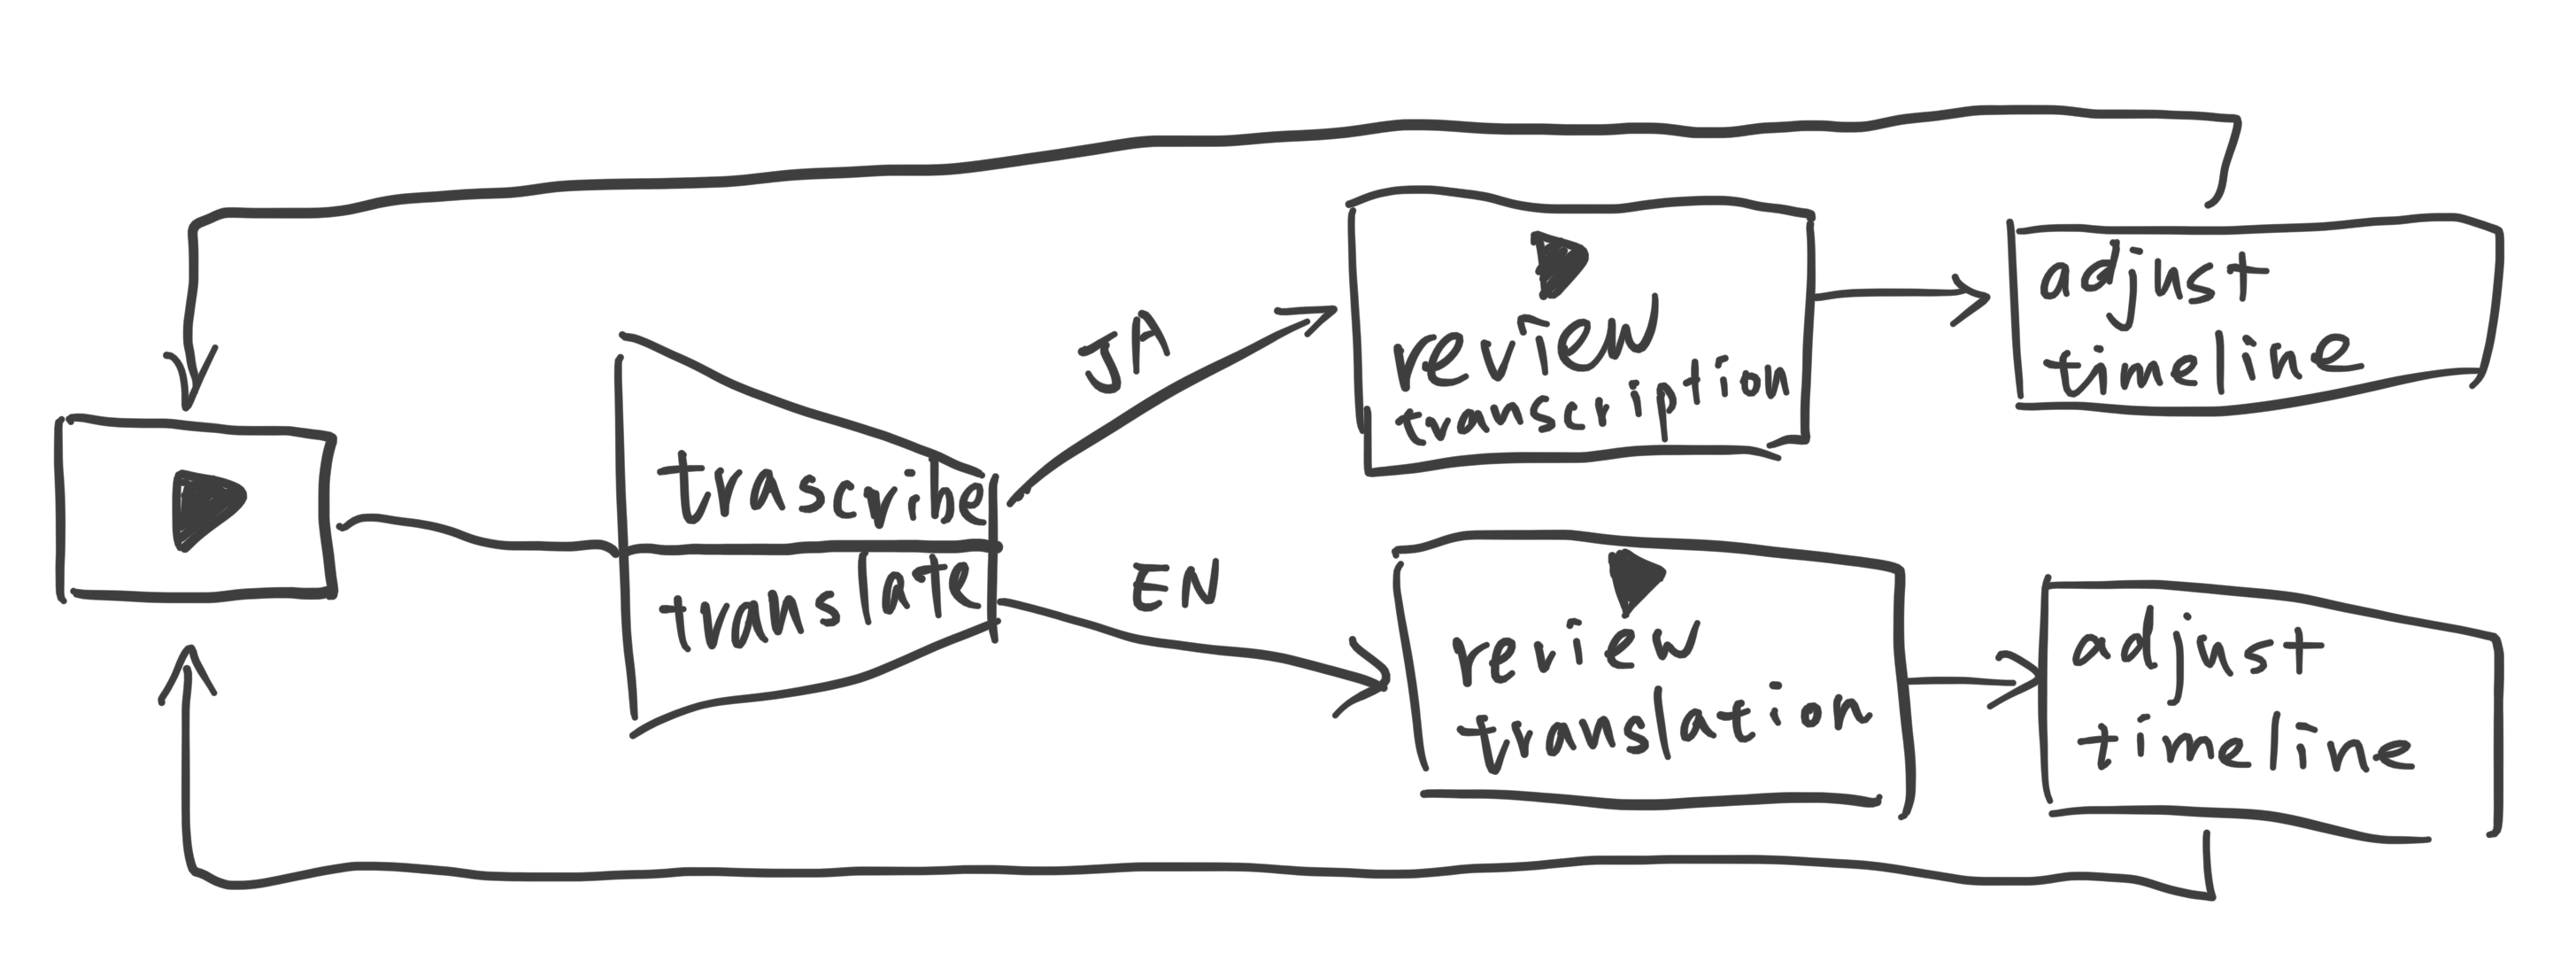 trascribe
translate
JA
EN
review
transcription
adjust
timeline
review
translation
adjust
timeline